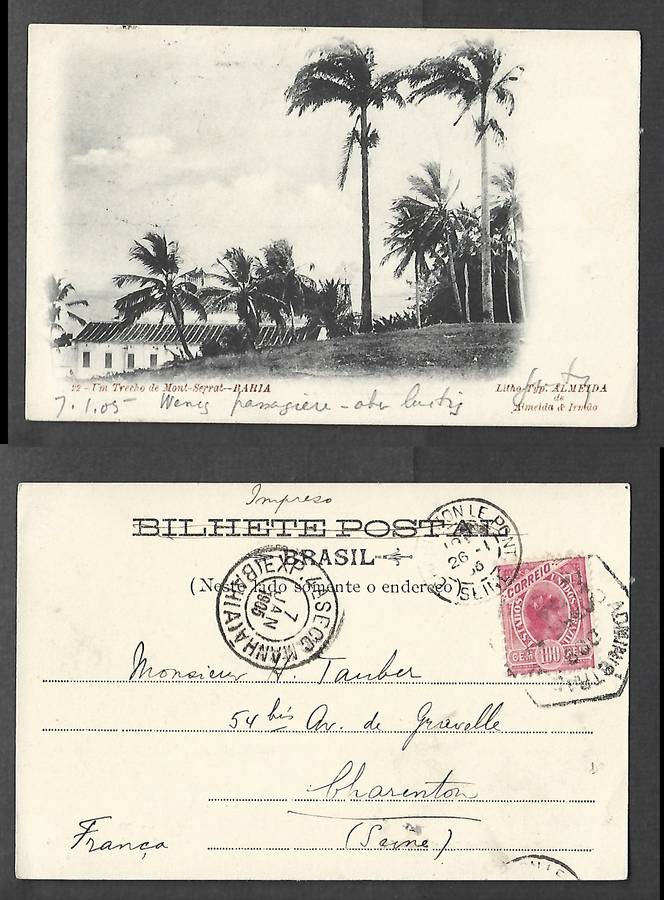 22 - Um Trecho de Mont-Serrat--BAHIA
Litho-Typ. ALMEIDA
de
Almeida & Irmão
7.1.05 Wenig passagiere - aber lustig
Impreso
BILHETE POSTAL
BRASIL
(Neste lado somente o endereço)
EXP. 1ª SECÇ MANHÃ (BAHIA)
7
JAN
1905
TON LE PONT
26 - 1
05
SEINE
CORREIO
ESTADOS UNIDOS DO BRASIL
CENT 100
ADMINISTRA
Monsieur H. Tauber
54 bis Av. de Gravelle
Charenton
(Seine)
França